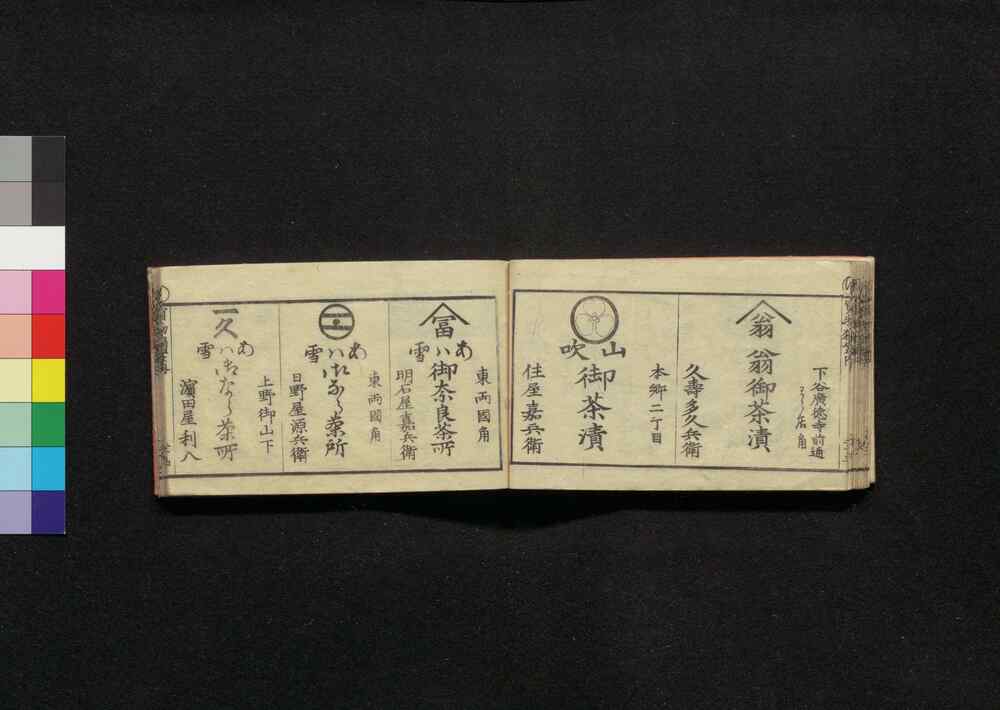 下谷廣徳寺前通
角
翁
翁御茶漬
久壽多久兵衛
本郷二丁目
山吹
御茶漬
住屋嘉兵衛
東両國角
冨
あは雪
御奈良茶所
明石屋嘉兵衛
東両國角
あは雪
日野屋源兵衛
上野御山下
一久
あは雪
濵田屋利八